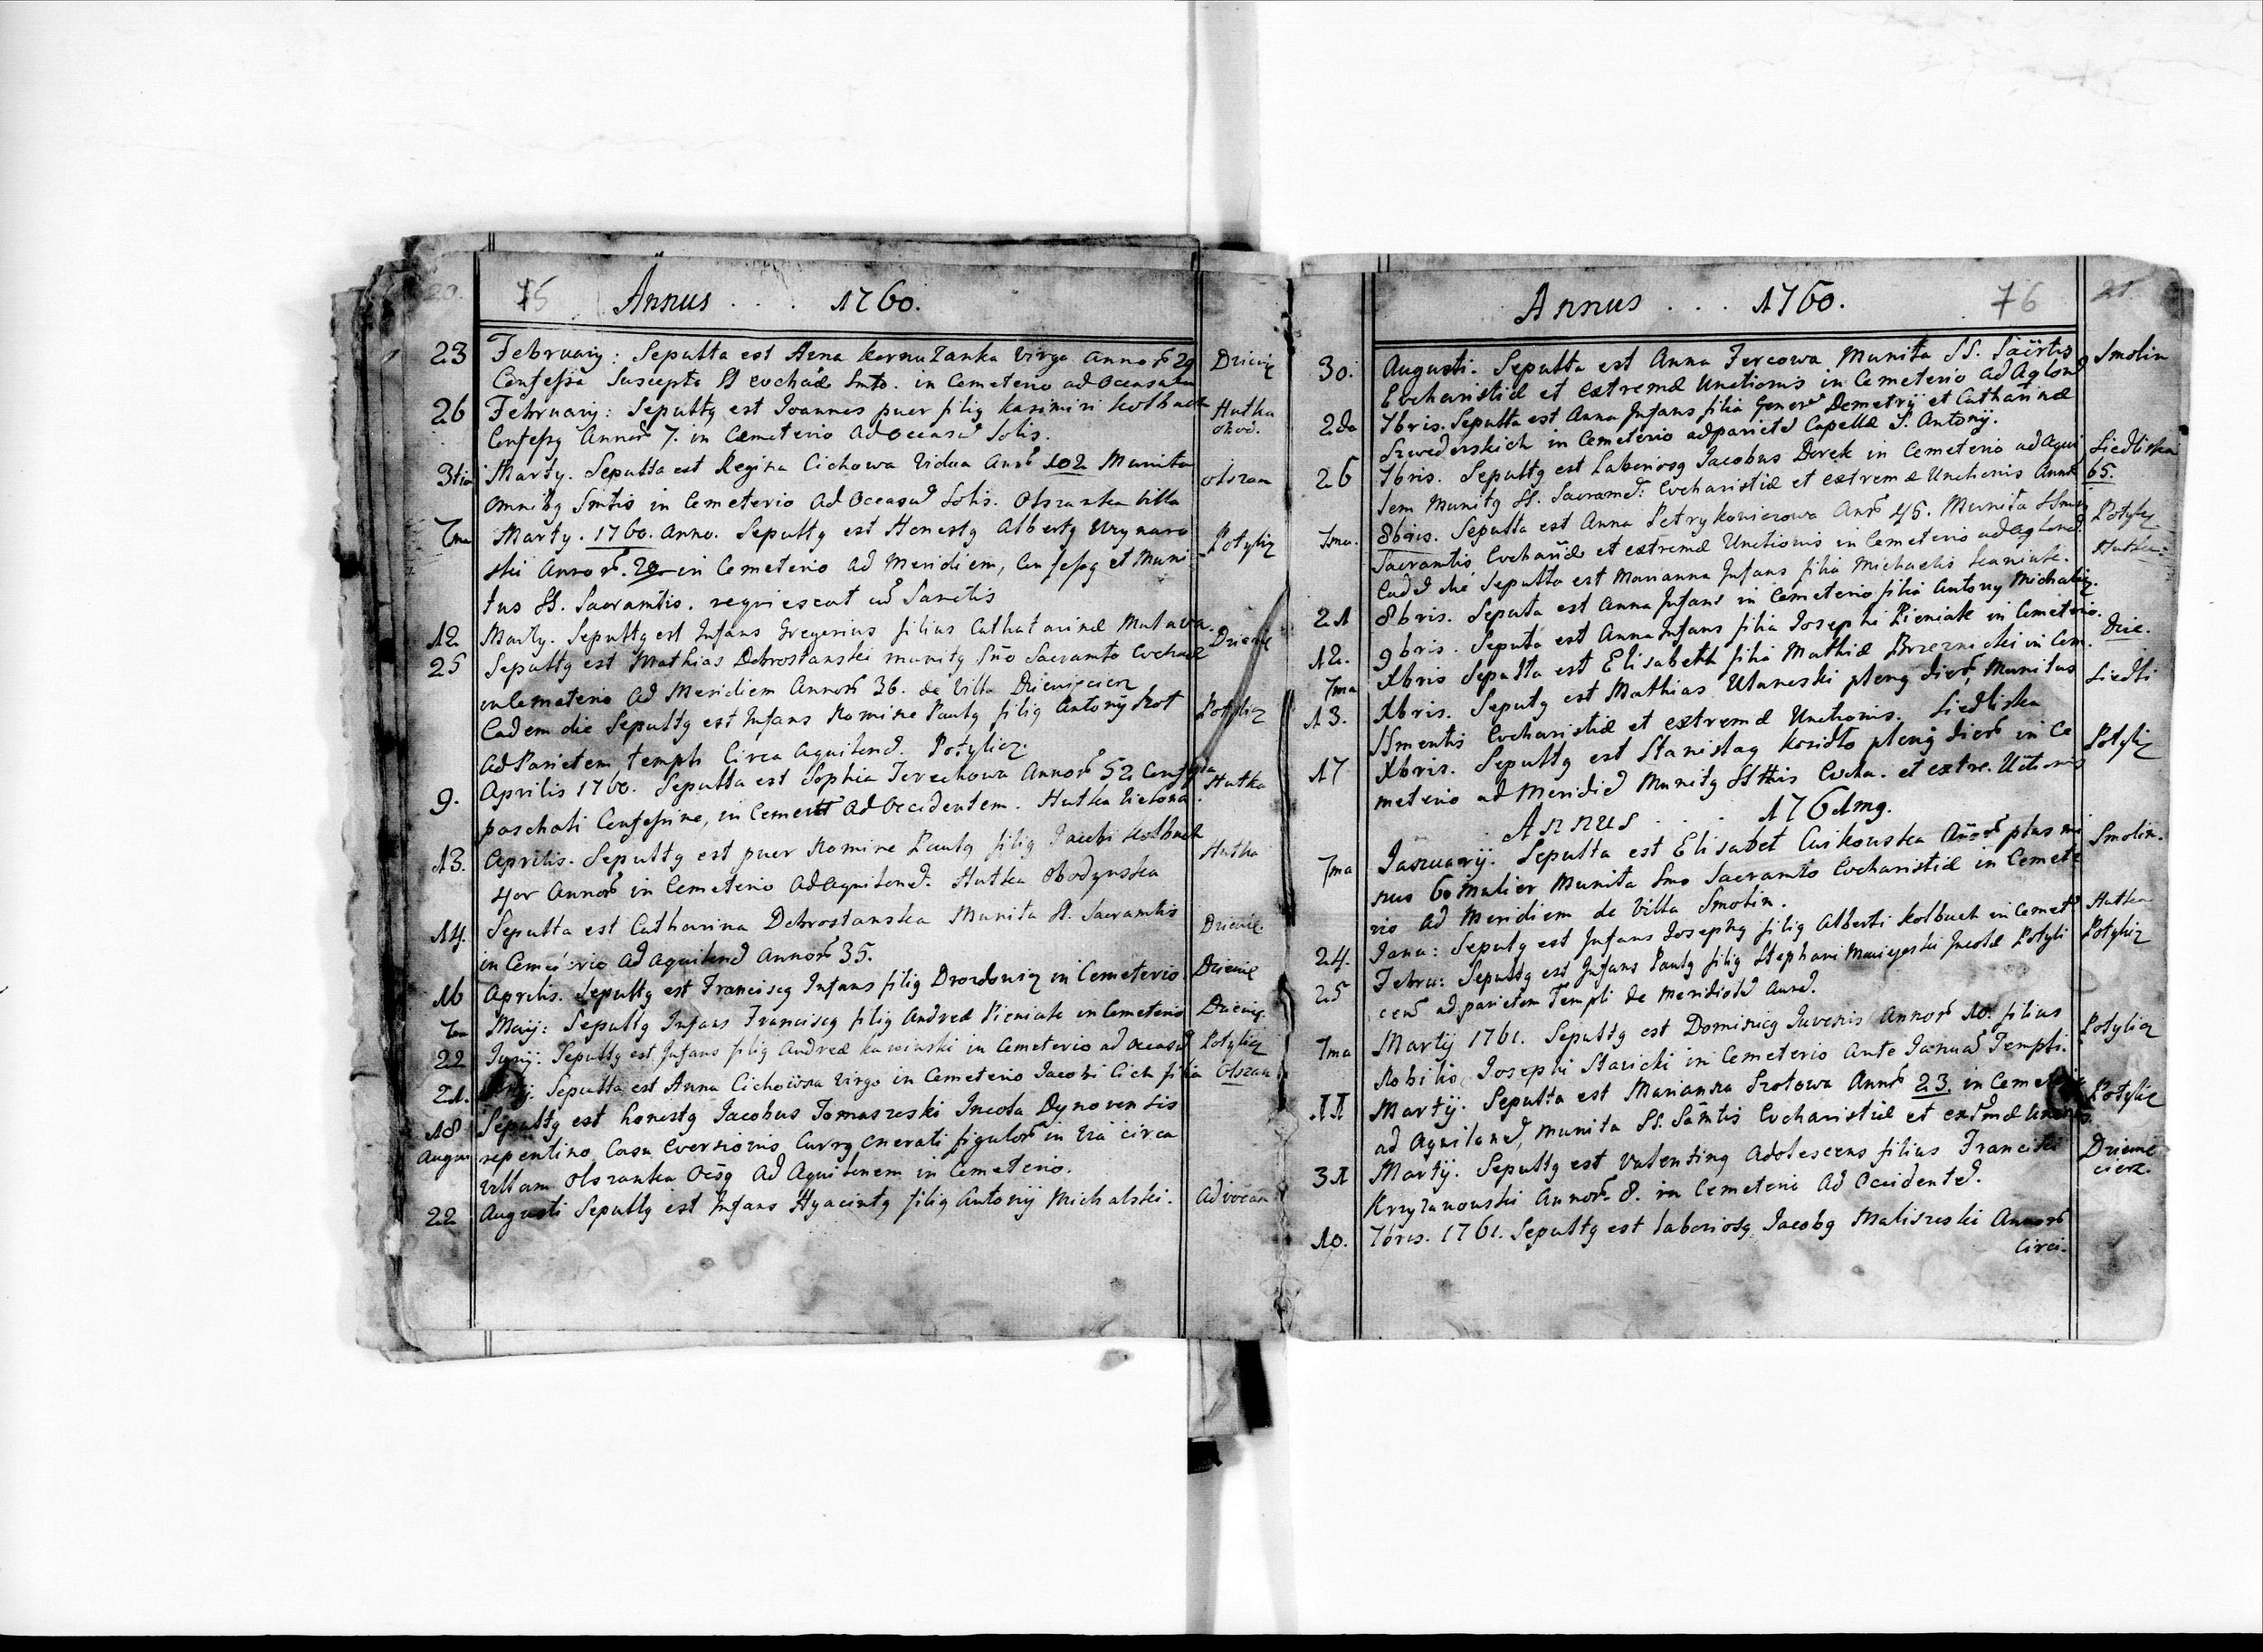 20.
75 Annus . . . 1760.
23 February: Sepulta est Anna KornuZanka Virgo annor 29 Dziewię
Confessa Suscepto SS Euchae Smto. in Cemeterio ad Occasum
26 February: Sepultg est Joannes puer filig Kasimiri Kolbuch Hutka
Confessg Annor 7. in Cemeterio ad Occasu Solis. obod.
3tia Martÿ. Sepulta est Regina Cichowa Vidua Anor 102 Munita olszan
omnibg Smtis in Cemeterio ad Occasu Solis. Olszanka Villa
7ma Martÿ. 1760. anno. Sepultg est Honestg Albertg Wrynaro
ski Annor. 20 in Cemeterio ad Meridiem, Confessg et Muni Potylicz
tus SS. Sacramtis. requiescat cu Sanctis
12 Martÿ. Sepultg est Infans Gregorius filius Cathatarinae Dziewie
25 Sepultg est Mathias Dobrostanski munitg Smo Sacramto Euchae
in Cemeterio ad Meridiem Annor 36. de Villa Dziewięcierz
Eadem die Sepultg est Infans Nomine Paulg filig Antonÿ Szot Potylicz
ad Parietem templi Circa aquilone. Potylicz.
9. Aprilis 1760. Sepulta est Sophia Terechowa Annor 52 Confessa Hutka
paschali Confessione, in Cemet ad Occidentem. Hutka Zielona
13. Aprilis. Sepultg est puer Nomine Paulg filig Jacobi Kolbuch Hutka
4or Annor in Cemeterio ad Aquilone. Hutka Obodynska
14. Sepulta est Catharina Dobrostanska Munita SS. Sacramtis Dziewie.
in Cemeterio ad Aquilone Annor 35.
16 Aprilis. Sepultg est Franciscg Infans filig Drozdowicz in Cemeterio. Dziewie
7ma Maÿ: Sepultg Infans Franciscg filig Andreae Pieniak in Cemeterio Dziewię.
22 Junÿ: Sepultg est Infans filig Andreae Kawinski in Cemeterio ad occasu Potylicz
21. Sepulta est Anna Cichowna Virgo in Cemeterio Jacobi Cich filia Olszan
18 Sepultg est honestg Jacobus Tomaszeski Incola Dynovensis
Augus repentino Casu Eversionis Currg Onerati figulor in Via circa
villam Olszanka Ocisg ad Aquilonem in Cemeterio.
22 Augusti Sepultg est Infans Hyacintg filig Antonÿ Michalski. Advocan
21
Annus . . . 1760. 76
30. Augusti. Sepulta est Anna Fercowa Munita SS. Sacrtis Smolin
Eucharistiae et Extremae Unctionis in Cemeterio ad Aqlone
2da 7bris. Sepulta est Anna Infans filia Gener Demetrÿ et Catharinae
Szwederskich in Cemeterio ad pariete Capellae S. Antonÿ.
26 7bris. Sepultg est Laboriosg Jacobus Dorek in Cemeterio ad Aqui Siedliska
lem Munitg SS. Sacrame: Eucharistiae et extremae Unctionis Anno 65.
7ma. 8bris. Sepulta est Anna Petrykowiczowa Anor 46. Munita SSmis Potylicz
Sacramtis Euchariae et extremae Unctionis in Cemeterio ad Aqlone.
Eade die Sepulta est Marianna Infans filia Michaelis Hutka.
21 8bris. Sepulta est Anna Infans in Cemeterio filia Antonÿ Michalicz.
12. 9bris. Sepulta est Anna Infans filia Josephi Pieniak in Cemeterio.
7ma Xbris Sepulta est Elisabeth filia Mathiae Brzeznicki in Cem. Dzie.
13. Xbris. Sepultg est Mathias Ulaneski pleng dier, Munitus Siedli
SSmentis Eucharistiae et extremae Unctionis. Siedliska
17 Xbris. Sepultg est Stanislag Kosidlo pleng dier in Ce Potylicz
meterio ad Meridie Munitg SSttis Eucha. et extre. Uctionis
Annus . . . 1761mg.
7ma Januarÿ. Sepulta est Elisabet Cuikowska Anor plus mi Smolin.
nus 60 Mulier Munita Smo Sacramto Eucharistiae in Cemete
rio ad Meridiem de Villa Smolin.
24. Janu: Sepultg est Infans Josephg filig Alberti Kolbuch in Cemete Hutka
25 Febru: Sepultg est Infans Paulg filig Stephani Maciejeski Incolae Potyli Potylicz
cen ad parietem Templi de Meridiole Aune.
7ma Martÿ 1761. Sepultg est Dominicg Iuvenis Annor 10. filius Potylicz
Nobilis Josephi Staricki in Cemeterio Ante Janua Templi.
11 Martÿ. Sepulta est Marianna Szotowa Annor 23. in Cemeterio Potylicz
ad Aquilone, munita SS. Samtis Eucharistiae et extmae Unctionis.
31 Martÿ. Sepultg est Valenting Adolescens filius Francisci Dziewie
Krzyzanowski Annor. 8. in Cemeterio ad Occidente. cierz.
10. 7bris. 1761. Sepultg est laboriosg Jacobg Maliszeski Annor
Circi.